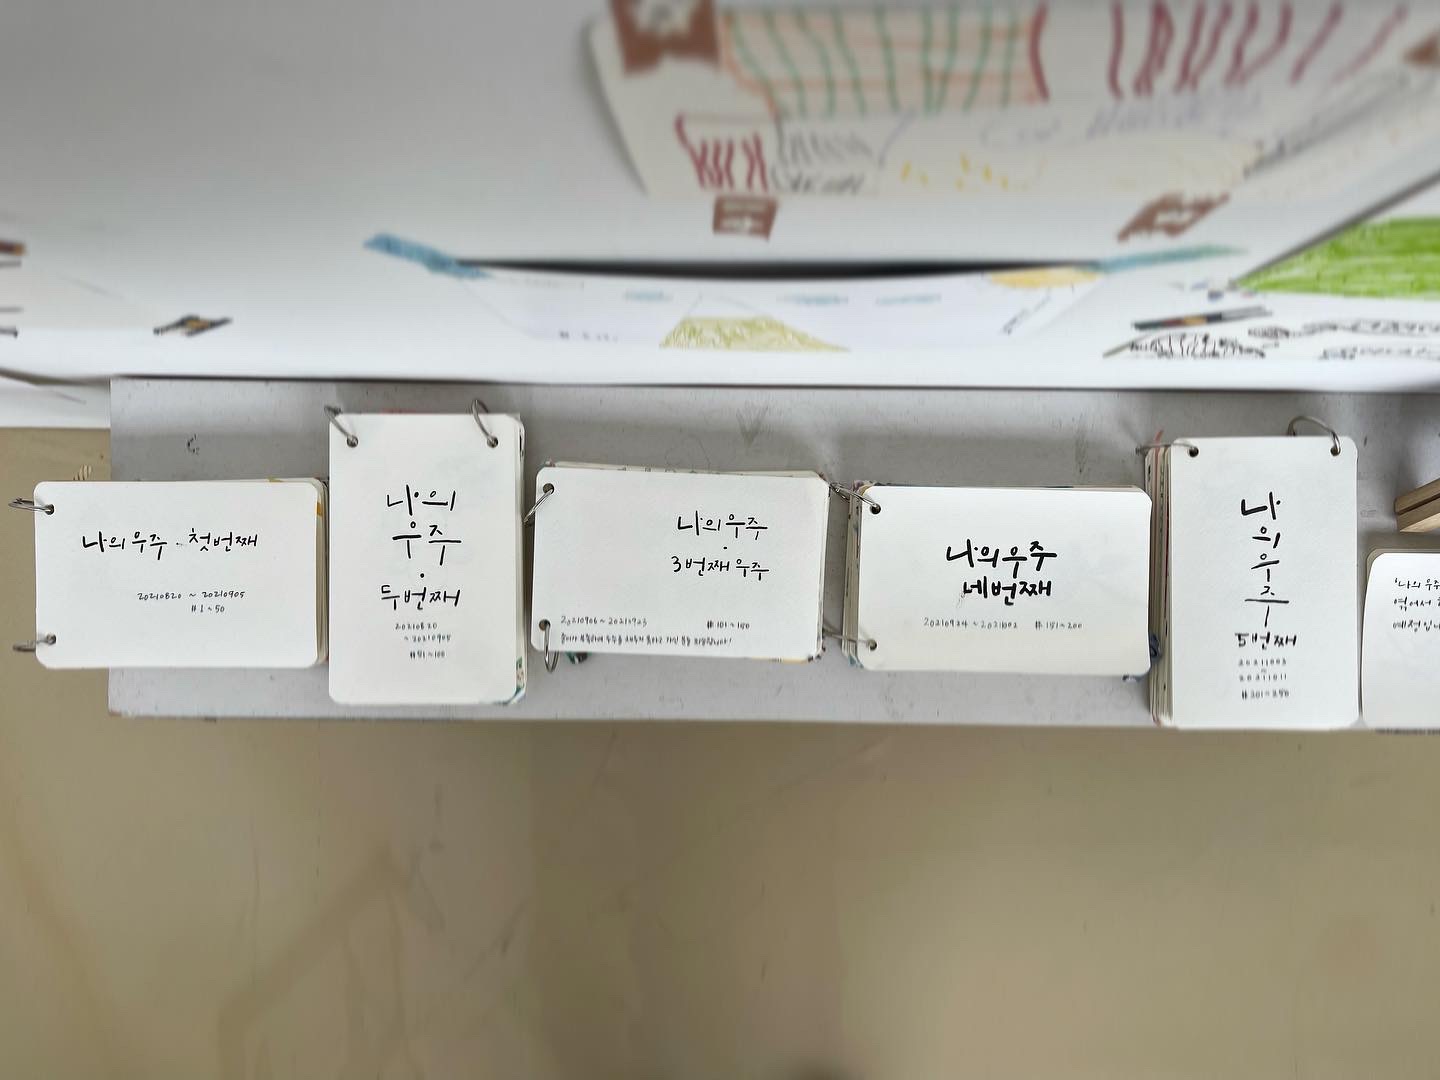 나의 우주 · 첫번째
20210820 ~ 20210905
#1~50
나의
우주
·
두번째
20210820
~20210905
#51~100
나의 우주
·
3번째 우주
20210906~20210923 #101~150
나의 우주
네번째
20210924~20211002 #151~200
나
의
우
주
5번째
20211003
~
20211011
#201~250
'나의 우주
엮어서
예정입니